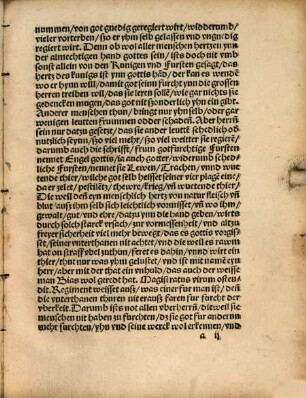 nummen/ von got gnedig geregiert wirt/ widderumb/
vieler vorterben/ ßo er yhm selb gelassen vnd vngnedig
regiert wirt. Denn ob wol aller menschen hertzen ynn
der almechtigen hand gottes sein/ ists doch nit vmb
sonst allein von den Kunigen vnd fursten gesagt/ das
hertz des kunigs ist ynn gottis hãd/ der kan es wendẽ
wo er hynn will/ damit got seinn furcht ynn die grossen
herren treiben will/ das sie leren solle/ wie gar nichts sie
gedencken mugen/ das got nit ßonderlich yhn ein gibt.
Anderer menschen thun/ bringt nur yhn selb/ oder gar
wenigen leutten frummen odder schaden. Aber herrn
sein nur datzu gesetzt/ das sie ander leutt schedlich odder
nutzlich seyn/ ßo viel mehr/ ßo viel weitter sie regierẽ/
darumb auch die schrifft/ frum gotfurchtige fursten
nennet Engel gottis/ ia auch gotter/ widerumb schedliche
fursten/ nennet sie Lewen/ Trachen/ vnnd wutende
thier/ wilche got selb heisset seiner vier plage eine/
da er zelet/ pestilẽtz/ thewre/ krieg/ vñ wuetende thier.
Die weil deñ eyn menschlich hertz von natur fleisch vñ
blut/ auß yhm selb sich leichtlich vormisset/ vñ wo yhm/
gewalt/ gut/ vnd ehre/ datzu ynn die hand geben/ wirts
durch solch starck vrsach/ zur vormessenheit/ vnd altzu
freyer sicherheit viel mehr bewegt/ das es gottis vorgisset/
seiner vnterthanen nit achtet/ vnd die weil es rawm
hat on straff vbel zuthun/ feret es dahin/ vnnd wirt ein
thier/ thut nur was yhm gelustet/ vnd ist mit namẽ eyn
herr/ aber mit der that ein vnhuld/ das auch der weisse
man Bias wol geredt hat. Magistratus virum ostendit.
Regiment weisset auß/ was einer fur man ist/ denn
die vnterthanen thuren nit erauß faren fur forcht der
vberkeit. Darumb ists not allen vberherrn/ dieweil sie
menschen nit haben zu furchten/ dz sie got fur andernn
mehr furchten/ yhn vnd seine werck wol erkennen/ vnd
a ij